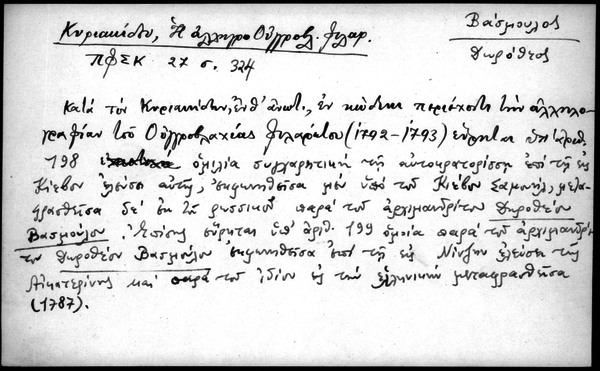 Βάσμουλος
Δωρόθεος
Κυριακίδου, Ἡ ἀλληλογρ. Οὐγγροβλ. Φιλαρ.
ΠΦΣΚ 27 σ. 324
Κατὰ τὸν Κυριακίδην, ἔνθ' ἀνωτ., ἐν κώδικι περιέχοντι τὴν ἀλληλο-
γραφίαν τοῦ Οὐγγροβλαχίας Φιλαρέτου (1792-1793) εὕρηται ὑπ' ἀριθ.
198 ὁμιλία συγχαρητικὴ τῇ αὐτοκρατορίσσῃ ἐπὶ τῇ εἰς
Κίεβον ἐλεύσει αὐτῆς, ἐκφωνηθεῖσα μὲν ὑπὸ τοῦ Κιέβου Σαμουήλ, μετα-
φρασθεῖσα δὲ ἐκ τοῦ ρωσσικοῦ παρὰ τοῦ ἀρχιμανδρίτου Δωροθέου
Βασμούλου. Ἐπίσης εὕρηται ὑπ' ἀριθ. 199 ὁμοία παρὰ τοῦ ἀρχιμανδρί-
του Δωροθέου Βασμούλου ἐκφωνηθεῖσα ἐπὶ τῇ εἰς Νίνζην ἐλεύσει τῆς
Αἰκατερίνης καὶ παρὰ τοῦ ἰδίου εἰς τὴν ἑλληνικὴν μεταφρασθεῖσα
(1787).